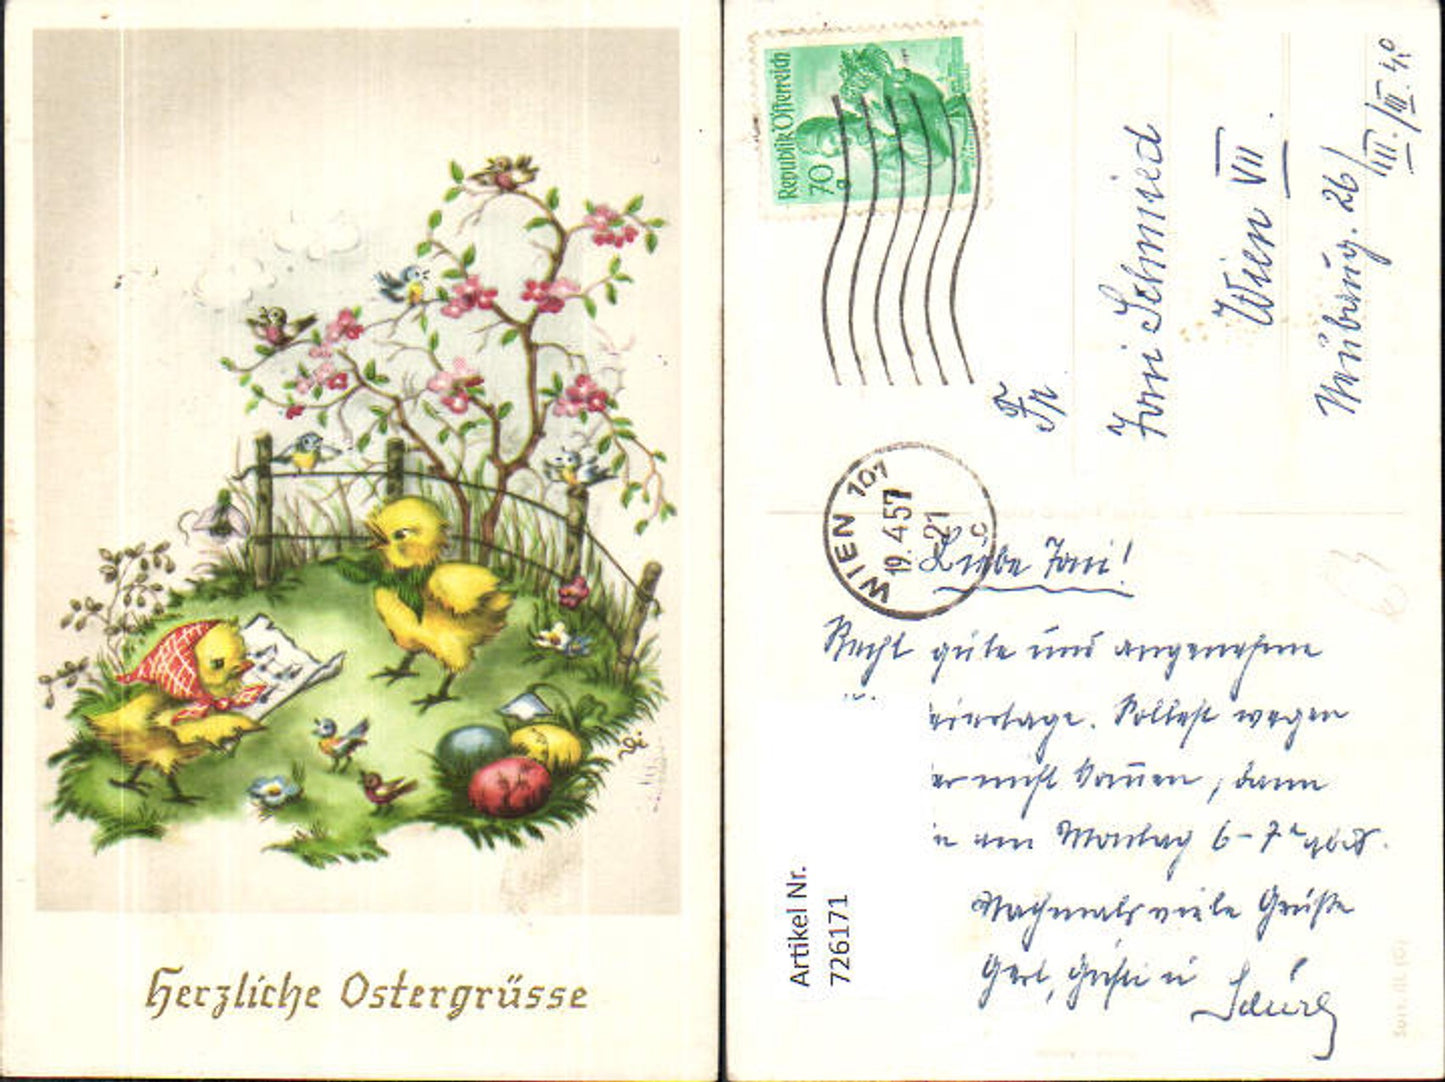 Herzliche Ostergrüsse
Republik Österreich
70 g
WIEN 101
19. 4 57
-21
C
Frl
Toni Schmied
Wien VII.
Neubaug. 26/
III./III. 40
Liebe Toni!
Recht gute und angenehme
Feiertage. Solltest wegen
nicht kommen, dann
am Montag 6-7
Nachmals viele Grüße
Gerl,
Artikel Nr.
726171